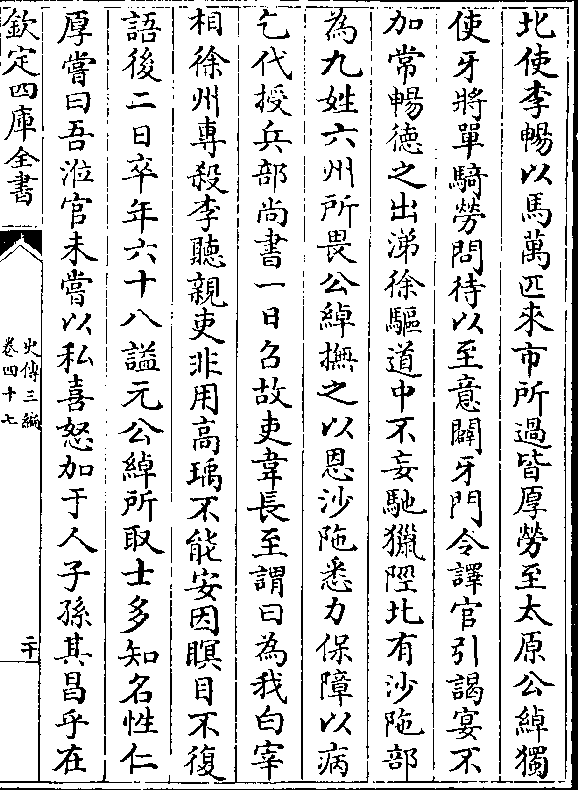 北使李暢以馬萬匹來市所過皆厚勞至太原公綽獨
使牙將單騎勞問待以至意闢牙門令譯官引謁宴不
加常暢德之出涕徐驅道中不妄馳獵陘北有沙陁部
為九姓六州所畏公綽撫之以恩沙陁悉力保障以病
乞代授兵部尚書一日召故吏韋長至謂曰為我白宰
相徐州專殺李聽親吏非用高瑀不能安因瞑目不復
語後二日卒年六十八謚元公綽所取士多知名性仁
厚嘗曰吾涖官未嘗以私喜怒加于人子孫其昌乎在
欽定四庫全書
史傳三編
卷四十七
二十